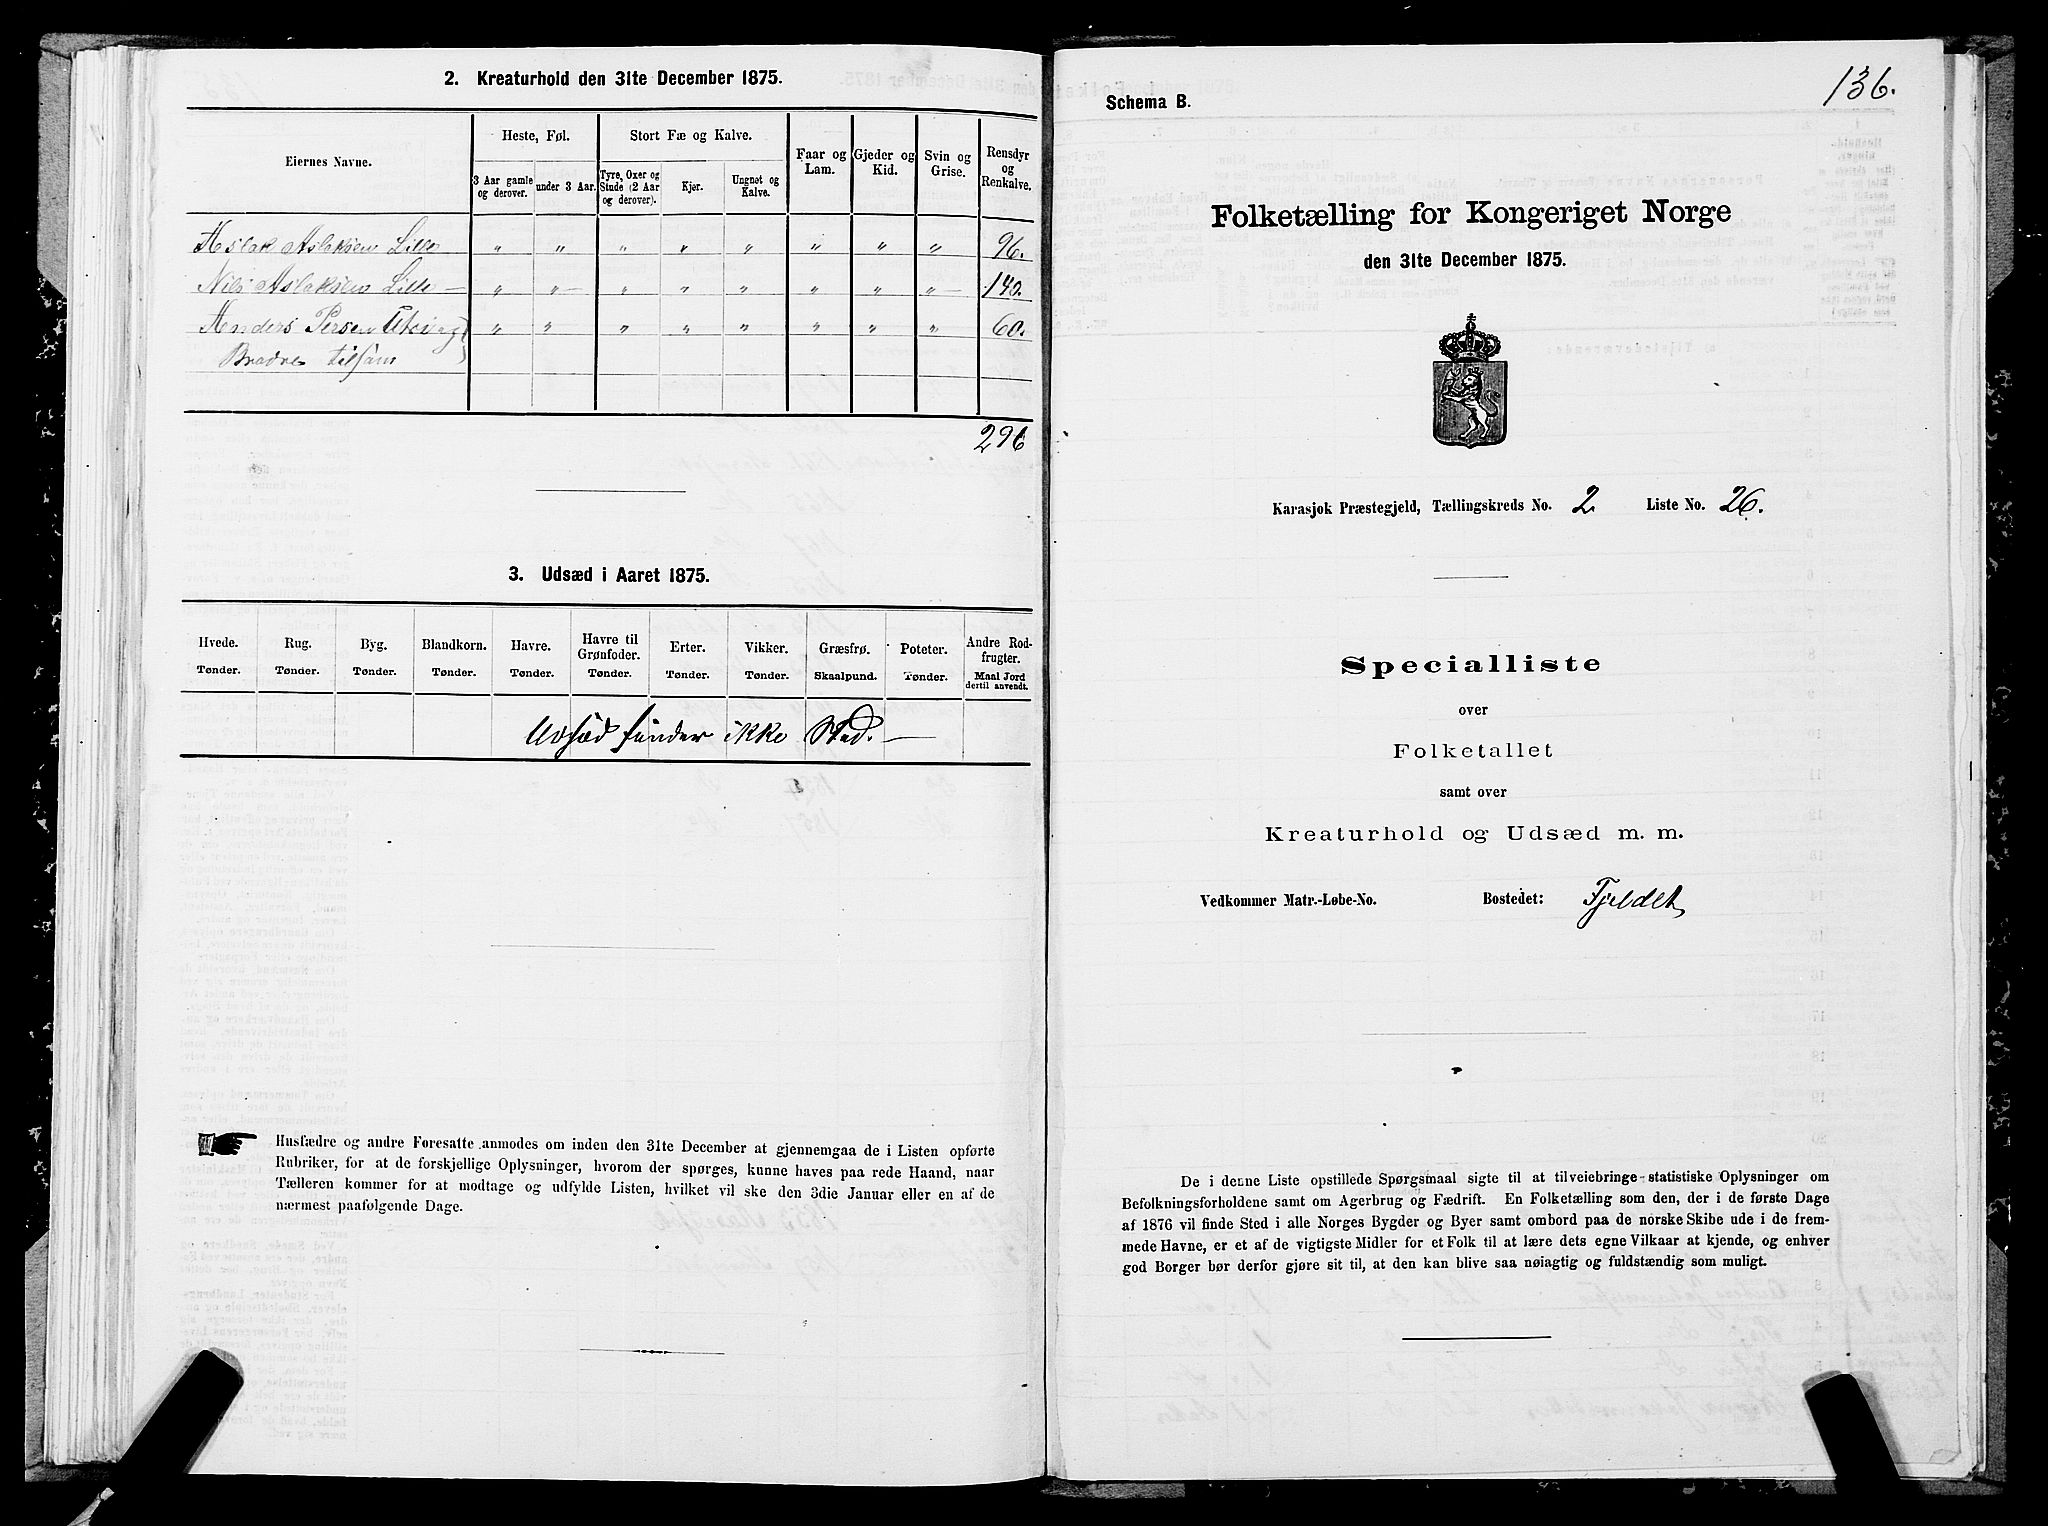 2. Kreaturhold den 31te December 1875.
Eiernes Navne.
Heste, Føl.
Stort Fæ og Kalve.
Faar og Lam.
Gjeder og Kid.
Svin og Grise.
Rensdyr og Renkalve.
3 Aar gamle og derover.
under 3 Aar.
Tyre, Oxer og Stude (2 Aar og derover).
Kjør.
Ungnøt og Kalve.
Aslak Aslaksen Lille " " " " " " " " 96.
Nils Aslaksen Lille — " " — " " " " " " — 140.
Anders Persen " " " " " " " " 60.
Brødre tilsam
296
3. Udsæd i Aaret 1875.
Hvede. Tønder.
Rug. Tønder.
Byg. Tønder.
Blandkorn. Tønder.
Havre. Tønder.
Havre til Grønfoder. Tønder.
Erter. Tønder.
Vikker. Tønder.
Græsfrø. Skaalpund.
Poteter. Tønder.
Andre Rodfrugter. Maal Jord dertil anvendt.
Udsæd finder ikke Sted. —
Husfædre og andre Foresatte anmodes om inden den 31te December at gjennemgaa de i Listen opførte
Rubriker, for at de forskjellige Oplysninger, hvorom der spørges, kunne haves paa rede Haand, naar
Tælleren kommer for at modtage og udfylde Listen, hvilket vil ske den 3die Januar eller en af de
nærmest paafølgende Dage.
136.
Schema B.
Folketælling for Kongeriget Norge
den 31te December 1875.
Karasjok Præstegjeld, Tællingskreds No. 2 Liste No. 26.
Specialliste
over
Folketallet
samt over
Kreaturhold og Udsæd m. m.
Vedkommer Matr.-Løbe-No. Bostedet: Fjeldet
De i denne Liste opstillede Spørgsmaal sigte til at tilveiebringe statistiske Oplysninger om
Befolkningsforholdene samt om Agerbrug og Fædrift. En Folketælling som den, der i de første Dage
af 1876 vil finde Sted i alle Norges Bygder og Byer samt ombord paa de norske Skibe ude i de frem-
mede Havne, er et af de vigtigste Midler for et Folk til at lære dets egne Vilkaar at kjende, og enhver
god Borger bør derfor gjøre sit til, at den kan blive saa nøiagtig og fuldstændig som muligt.